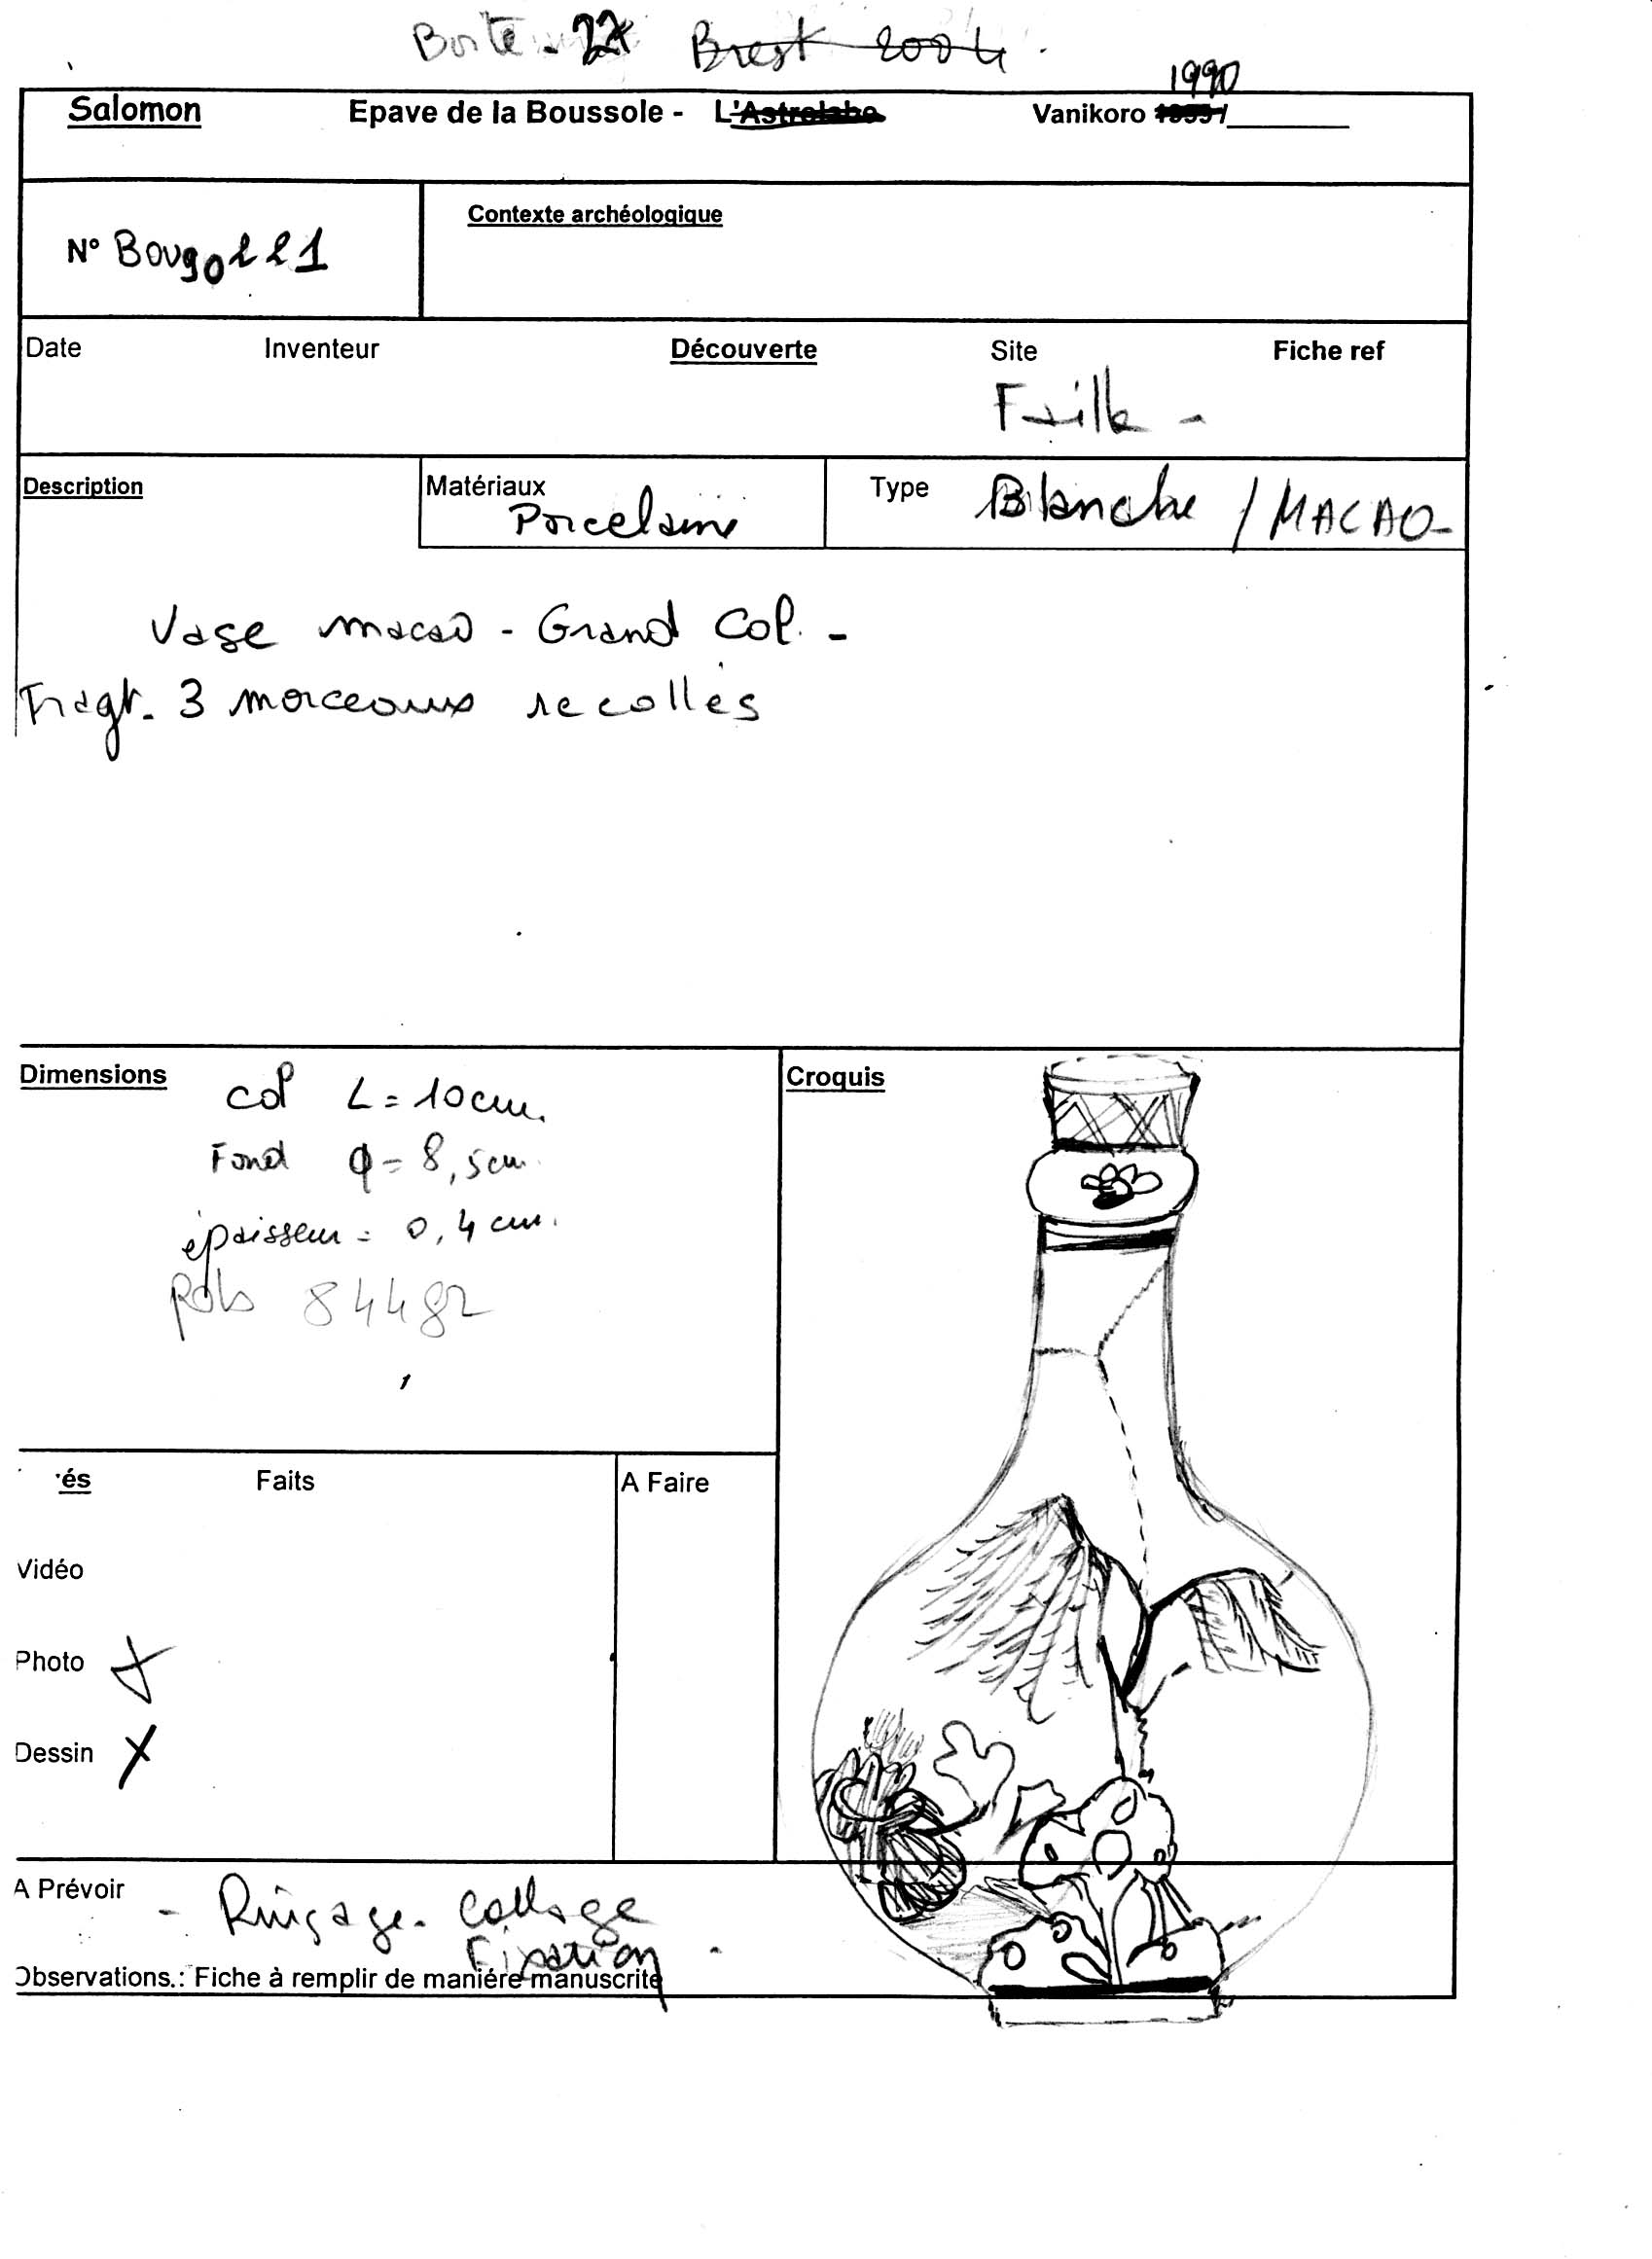 Boite - 27 Brest 2004
1990
Salomon Epave de la Boussole - L'Astrolabe Vanikoro
N° Bou90221
Contexte archéologique
Date Inventeur Découverte Site Fiche ref
Faille -
Description Matériaux Type Blanche / MACAO -
Porcelaine
Vase macao - Grand Col. -
Fragt. 3 morceaux recollés
Dimensions
Col L = 10 cm.
Fond φ = 8,5 cm.
épaisseur = 0,4 cm.
Poids 844 gr
Croquis
és Faits A Faire
Vidéo
Photo X
Dessin X
A Prévoir - Rinçage - Collage
Fixation -
Observations.: Fiche à remplir de maniére manuscrite